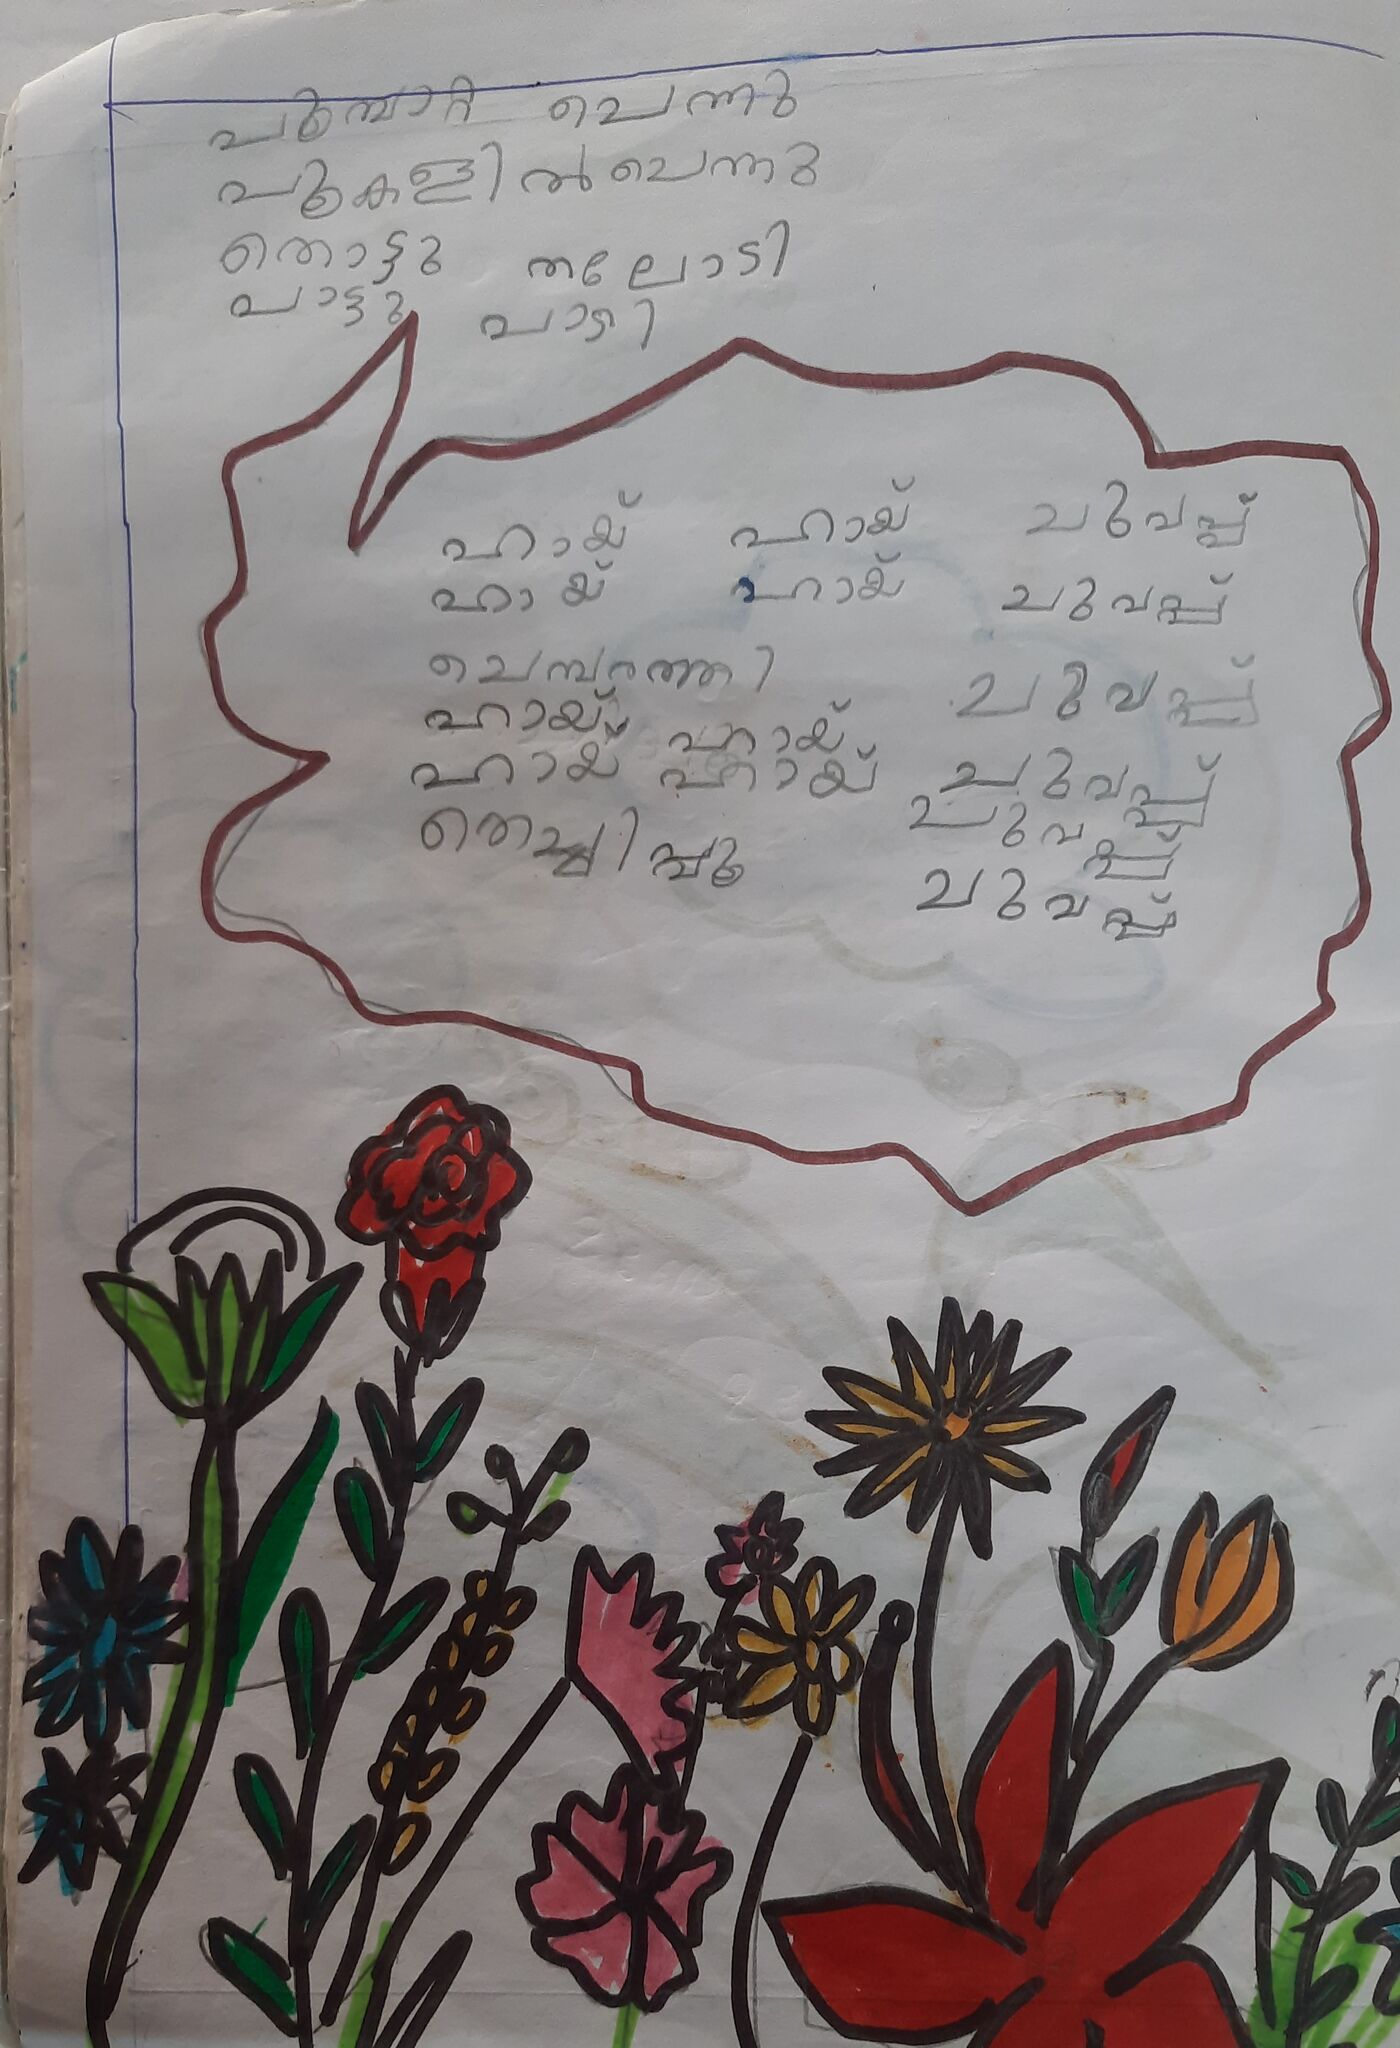 പൂമ്പാറ്റ ചെന്നു
പൂകളിൽ ചെന്നു
തൊട്ടു തലോടി
പാട്ടു പാടി
ഹായ് ഹായ് ചുവപ്പ്
ഹായ് ഹായ് ചുവപ്പ്
ചെമ്പരത്തി ചുവപ്പ്
ഹായ് ഹായ് ചുവപ്പ്
ഹായ് ഹായ് ചുവപ്പ്
തെച്ചിപ്പൂ ചുവപ്പ്